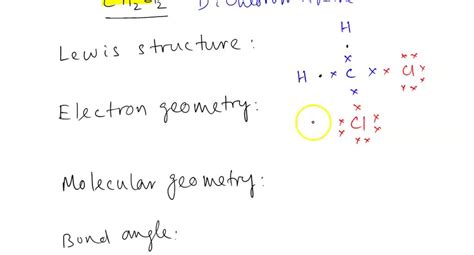 CH₂Cl₂ Dichloromethane
Lewis structure:
H
H C Cl
Electron geometry:
Cl
Molecular geometry:
Bond angle: